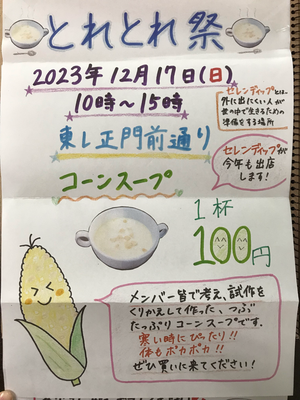 とれとれ祭
2023年12月17日(日)
10時〜15時
東レ正門前通り
コーンスープ
セレンディップとは、
外に出にくい人が
世の中で生きるための
準備をする場所
セレンディップが
今年も出店
します!
1杯
100円
メンバー皆で考え、試作を
くりかえして作った、つぶ
たっぷりコーンスープです。
寒い時にぴったり!!
体もポカポカ!!
ぜひ買いに来てください!